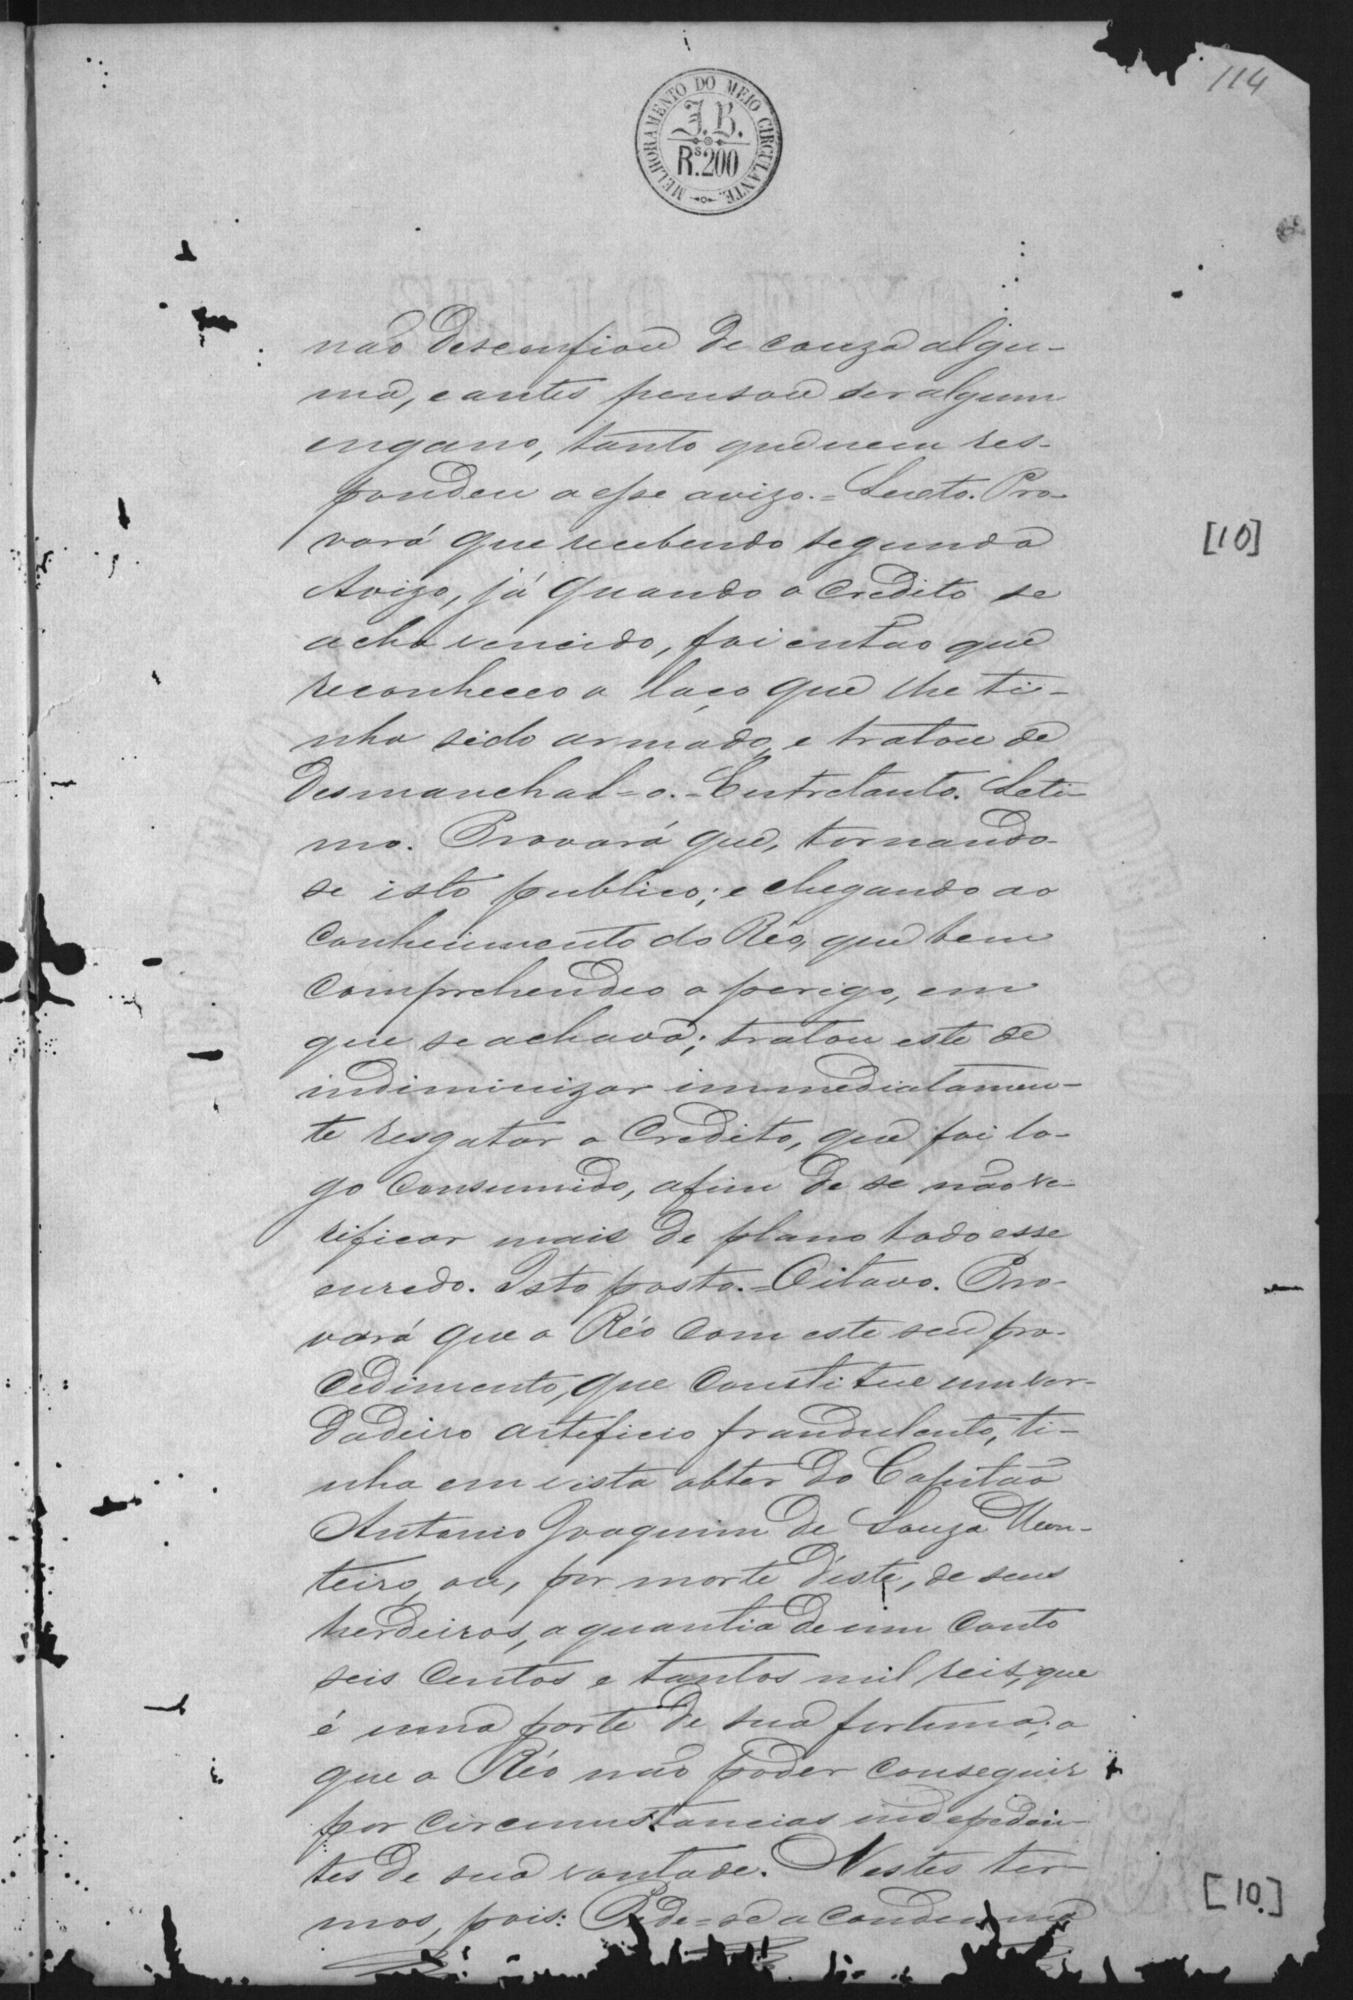 114
MELHORAMENTO DO MEIO CIRCULANTE
J. B.
Rs. 200
não desconfiou de couza algu-
ma, e antes pensou ser algum
engano, tanto que nem res-
pondeu a esse avizo.= Sexto. Pro-
vará que recebendo segundo
Avizo, já quando o credito se
acha vencido, foi então que
reconheceo o laço que lhe ti-
nha sido armado, e tratou de
desmanchal-o.= Entretanto. Seti-
mo. Provará que, tornando-
se isto publico; e chegando ao
conhecimento do Réo, que bem
comprehendeo o perigo, em
que se achava; tratou este de
indiminizar immediatamen-
te resgatar o Credito, que foi lo-
go consumido, afim de se não ve-
rificar mais de plano todo esse
enredo. Isto posto.= Oitavo. Pro-
vará que o Réo com este seu pro-
cedimento, que constitue um ver-
dadeiro artificio fraudulento, ti-
nha em vista obter do Capitão
Antonio Joaquim de Souza Mon-
teiro, ou, por morte d'este, de seus
herdeiros, a quantia de um conto
seis centos e tantos mil reis, que
é uma parte de sua fortuna; o
que o Réo não poder conseguir
por circumstancias indepeden-
tes de sua vontade. Nestes ter-
mos, pois: Pede-se a condemna
[10]
[10.]